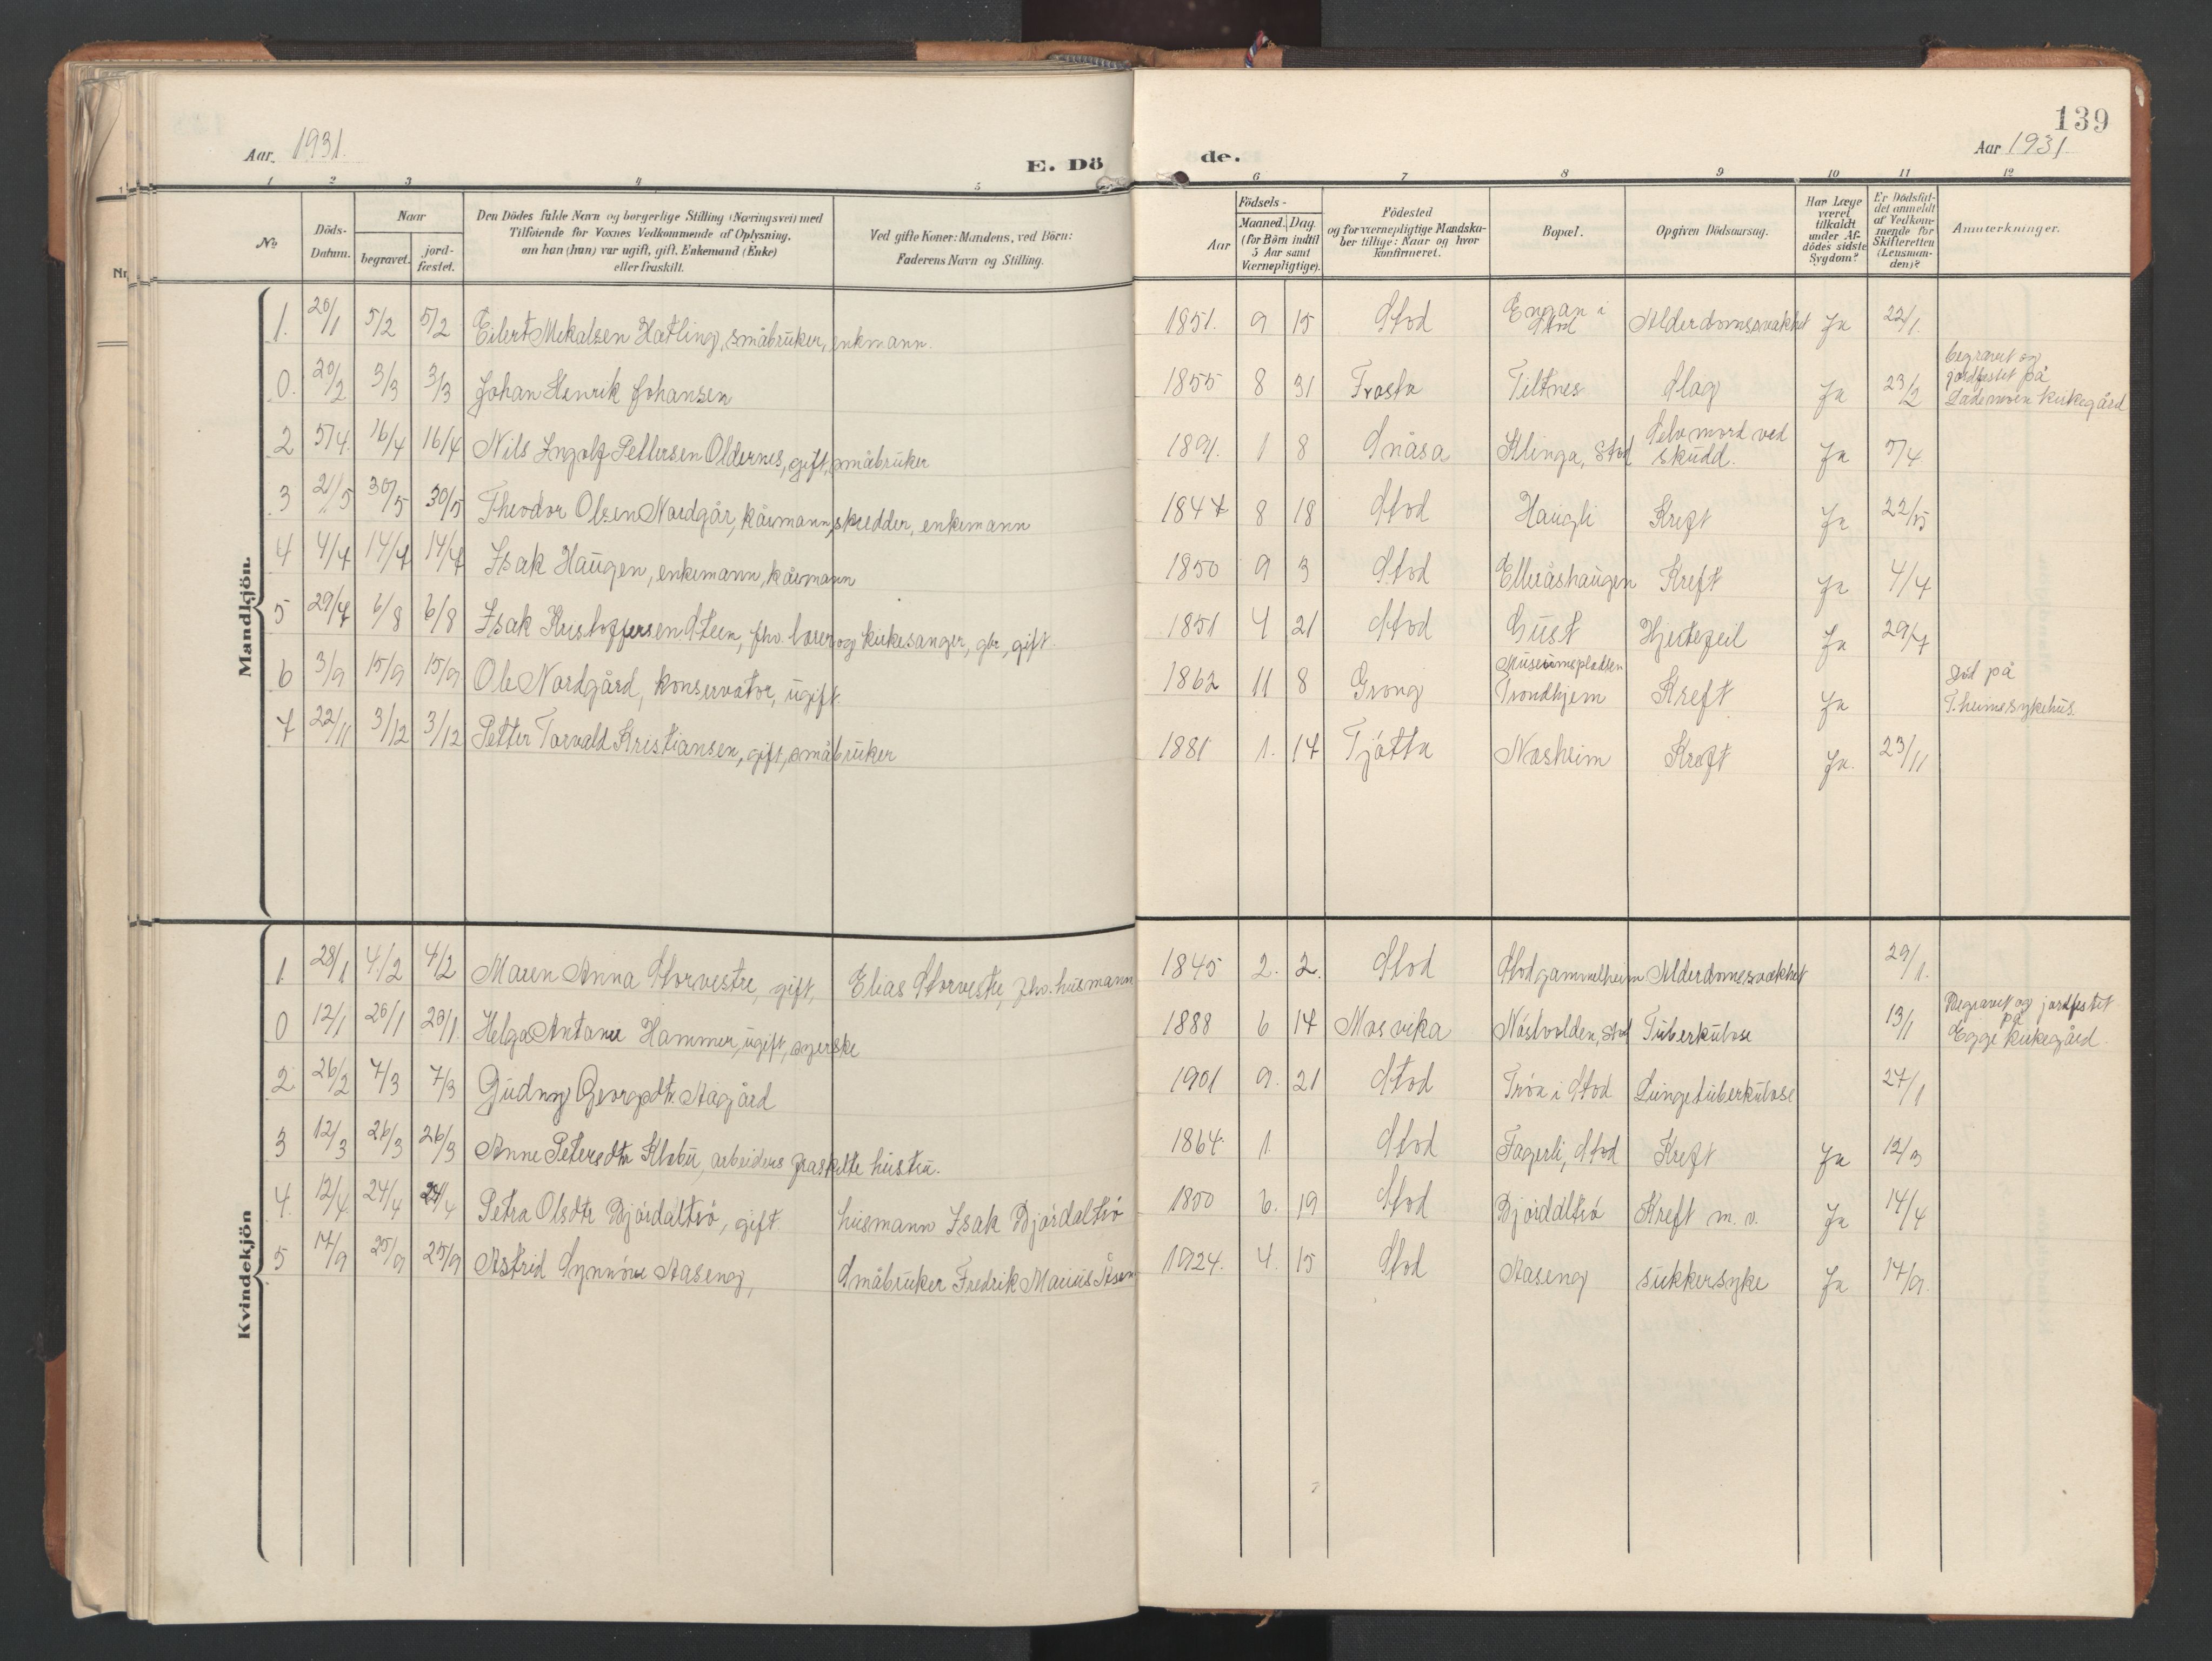 139
Aar 1931.
E. Dö
de.
Aar 1931.
1 2 3 4 5 6 7 8 9 10 11 12
No
Döds-Datum.
Naar
begravet. jord-fæstet.
Den Dödes fulde Navn og borgerlige Stilling (Næringsvei) med
Tilföiende for Voxnes Vedkommende af Oplysning,
om han (hun) var ugift, gift, Enkemand (Enke)
eller fraskilt.
Ved gifte Koner: Mandens, ved Börn:
Faderens Navn og Stilling.
Födsels-
Aar
Maaned. Dag
(for Börn indtil
5 Aar samt
Værnepligtige).
Födested
og for værnepligtige Mandska-
ber tillige: Naar og hvor
konfirmeret.
Bopæl.
Opgiven Dödsaarsag.
Har Læge
været
tilkaldt
under Af-
dödes sidste
Sygdom?
Er Dödsfal-
det anmeldt
af Vedkom-
mende for
Skifteretten
(Lensman-
den)?
Anmerkninger.
Mandkjön.
1. 20/1 5/2 5/2 Eilert Mikalsen Hatling, småbruker, enkmann. 1851. 9 15 Stod Engan i Stod Alderdomssvakhet Ja 22/1.
0. 20/2 3/3 3/3 Johan Henrik Johansen 1855 8 31 Frosta Tiltnes Slag Ja 23/2 begravet og jordfestet på Lademoen kirkegård
2 5/4. 16/4 16/4 Nils Ingolf Pettersen Oldernes, gift, småbruker 1891. 1 8 Snåsa Klinga, Stod Selvmord ved skudd. Ja 7/4
3 21/5 30/5 30/5 Theodor Olsen Nordgår, kårmann, skredder, enkemann 1847 8 18 Stod Haugli Kreft Ja 22/5
4 4/7 14/7 14/7 Isak Haugen, enkemann, kårmann 1850 9 3 Stod Elleråshaugen Kreft Ja 4/7
5 29/7 6/8 6/8 Isak Kristoffersen Steen, fhv. lærer og kirkesanger, gbr, gift. 1851 4 21 Stod Gust Hjertefeil Ja 29/7
6 3/9 15/9 15/9 Ole Nordgård, konservator, ugift. 1862 11 8 Grong Museumspladsen Trondhjem Kreft Ja død på T.heims sykehus.
7 22/11 3/12 3/12 Petter Torvald Kristiansen, gift, småbruker 1881 1. 17 Tjøtta Nosheim Kreft Ja. 23/11
Kvindekjön
1. 28/1 4/2 4/2 Maren Anna Storvestre, gift, Elias Storvestre, fhv. husmann 1845 2. 2. Stod Stod gammelheim Alderdomssvakhet 29/1.
0 12/1 20/1 20/1. Helga Antonie Hammer, ugift, syerske 1888 6 17 Mosvika Nøstvolden, Stod Tuberkulose 13/1 Begravet og jordfestet på Egge kirkegård.
2 26/2 7/3 7/3 Gudny Georgsdtr. Aagård 1901 9. 21 Stod Trøa i Stod Lungetuberkulose 27/1
3 12/3 26/3 26/3 Anne Petersdtr Klæbu, arbeiders fraskilte hustru. 1864. 1. Stod Fagerli, Stod Kreft Ja 12/3
4. 12/4 24/4 24/4 Petra Olsdtr Bjørdaltrø, gift husmann Isak Bjørdaltrø 1850 6. 19 Stod Bjørdaltrø Kreft m. v. Ja 14/4
5 17/9 25/9 25/9 Astrid Synnøve Aaseng, Småbruker Fredrik Marius Åsen 1924. 4. 15 Stod Aaseng sukkersyke Ja 17/9.